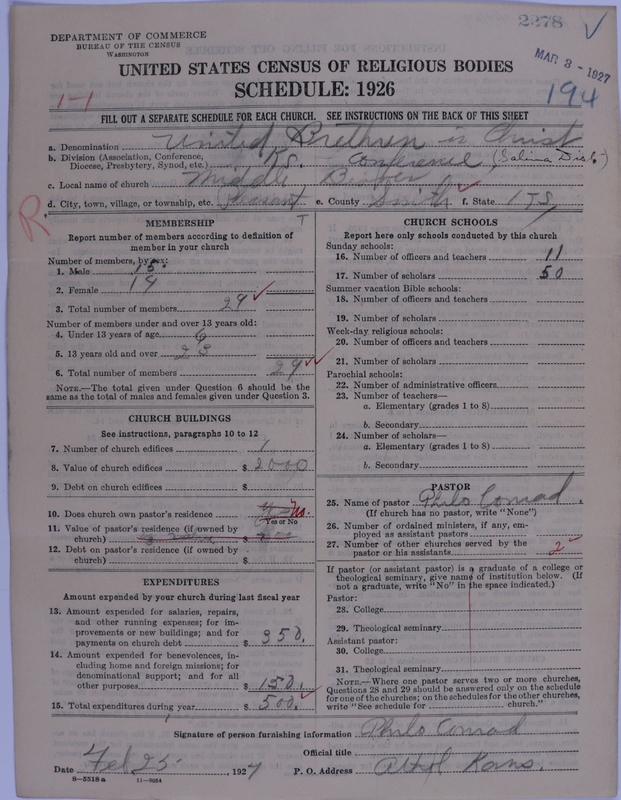 2278
DEPARTMENT OF COMMERCE
BUREAU OF THE CENSUS
WASHINGTON
MAR 3 - 1927
UNITED STATES CENSUS OF RELIGIOUS BODIES
194
SCHEDULE: 1926
1-1
FILL OUT A SEPARATE SCHEDULE FOR EACH CHURCH. SEE INSTRUCTIONS ON THE BACK OF THIS SHEET
a. Denomination United Brethren in Christ
b. Division (Association, Conference, Diocese, Presbytery, Synod, etc.) Ks. Conference (Salina Dist.)
c. Local name of church Middle Beaver
d. City, town, village, or township, etc. Pleasant T e. County Smith f. State
R
MEMBERSHIP
Report number of members according to definition of
member in your church
Number of members, by sex:
1. Male 15.
2. Female 14
3. Total number of members 29
Number of members under and over 13 years old:
4. Under 13 years of age 6
5. 13 years old and over 23
6. Total number of members 29
NOTE.—The total given under Question 6 should be the
same as the total of males and females given under Question 3.
CHURCH BUILDINGS
See instructions, paragraphs 10 to 12
7. Number of church edifices 1
8. Value of church edifices $2000
9. Debt on church edifices $
10. Does church own pastor's residence No.
Yes or No
11. Value of pastor's residence (if owned by
church) $
12. Debt on pastor's residence (if owned by
church) $
EXPENDITURES
Amount expended by your church during last fiscal year
13. Amount expended for salaries, repairs,
and other running expenses; for im-
provements or new buildings; and for
payments on church debt $ 350.
14. Amount expended for benevolences, in-
cluding home and foreign missions; for
denominational support; and for all
other purposes $ 150.
15. Total expenditures during year $ 500.
CHURCH SCHOOLS
Report here only schools conducted by this church
Sunday schools:
16. Number of officers and teachers 11
17. Number of scholars 50
Summer vacation Bible schools:
18. Number of officers and teachers
19. Number of scholars
Week-day religious schools:
20. Number of officers and teachers
21. Number of scholars
Parochial schools:
22. Number of administrative officers
23. Number of teachers—
a. Elementary (grades 1 to 8)
b. Secondary
24. Number of scholars—
a. Elementary (grades 1 to 8)
b. Secondary
PASTOR
25. Name of pastor Philo Conrad.
(If church has no pastor, write "None")
26. Number of ordained ministers, if any, em-
ployed as assistant pastors
27. Number of other churches served by the
pastor or his assistants 2
If pastor (or assistant pastor) is a graduate of a college or
theological seminary, give name of institution below. (If
not a graduate, write "No" in the space indicated.)
Pastor:
28. College
29. Theological seminary
Assistant pastor:
30. College
31. Theological seminary
NOTE.—Where one pastor serves two or more churches,
Questions 28 and 29 should be answered only on the schedule
for one of the churches; on the schedules for the other churches,
write "See schedule for church."
Signature of person furnishing information Philo Conrad
Official title
Date Feb 25 1927 P. O. Address Athol Kans.
8-5518 a 11-9054